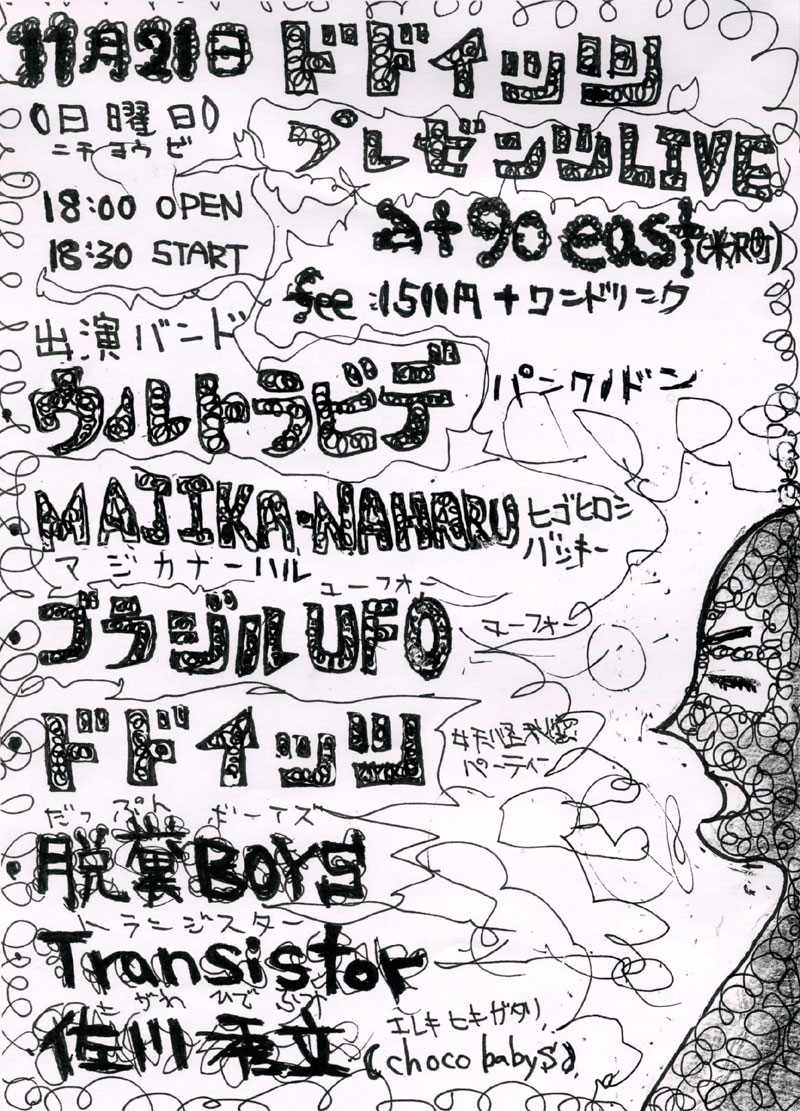 11月21日 ドドイッツ
(日曜日)
ニチヨウビ
プレゼンツLIVE
18:00 OPEN
18:30 START
at 90 east
fee:1500円+ワンドリンク
出演バンド
ウルトラビデ パンク/ドドン
MAJIKA-NAHARU ヒゴヒロシ
バッキー
マジカナーハル
ユーフォー
ブラジルUFO ユーフォー
ドドイッツ
パーティー
だっぷん ボーイズ
脱糞BOYS
トランジスター
Transistor
さがわ ひでふみ
佐川秀文 エレキヒキガタリ
(choco babys)